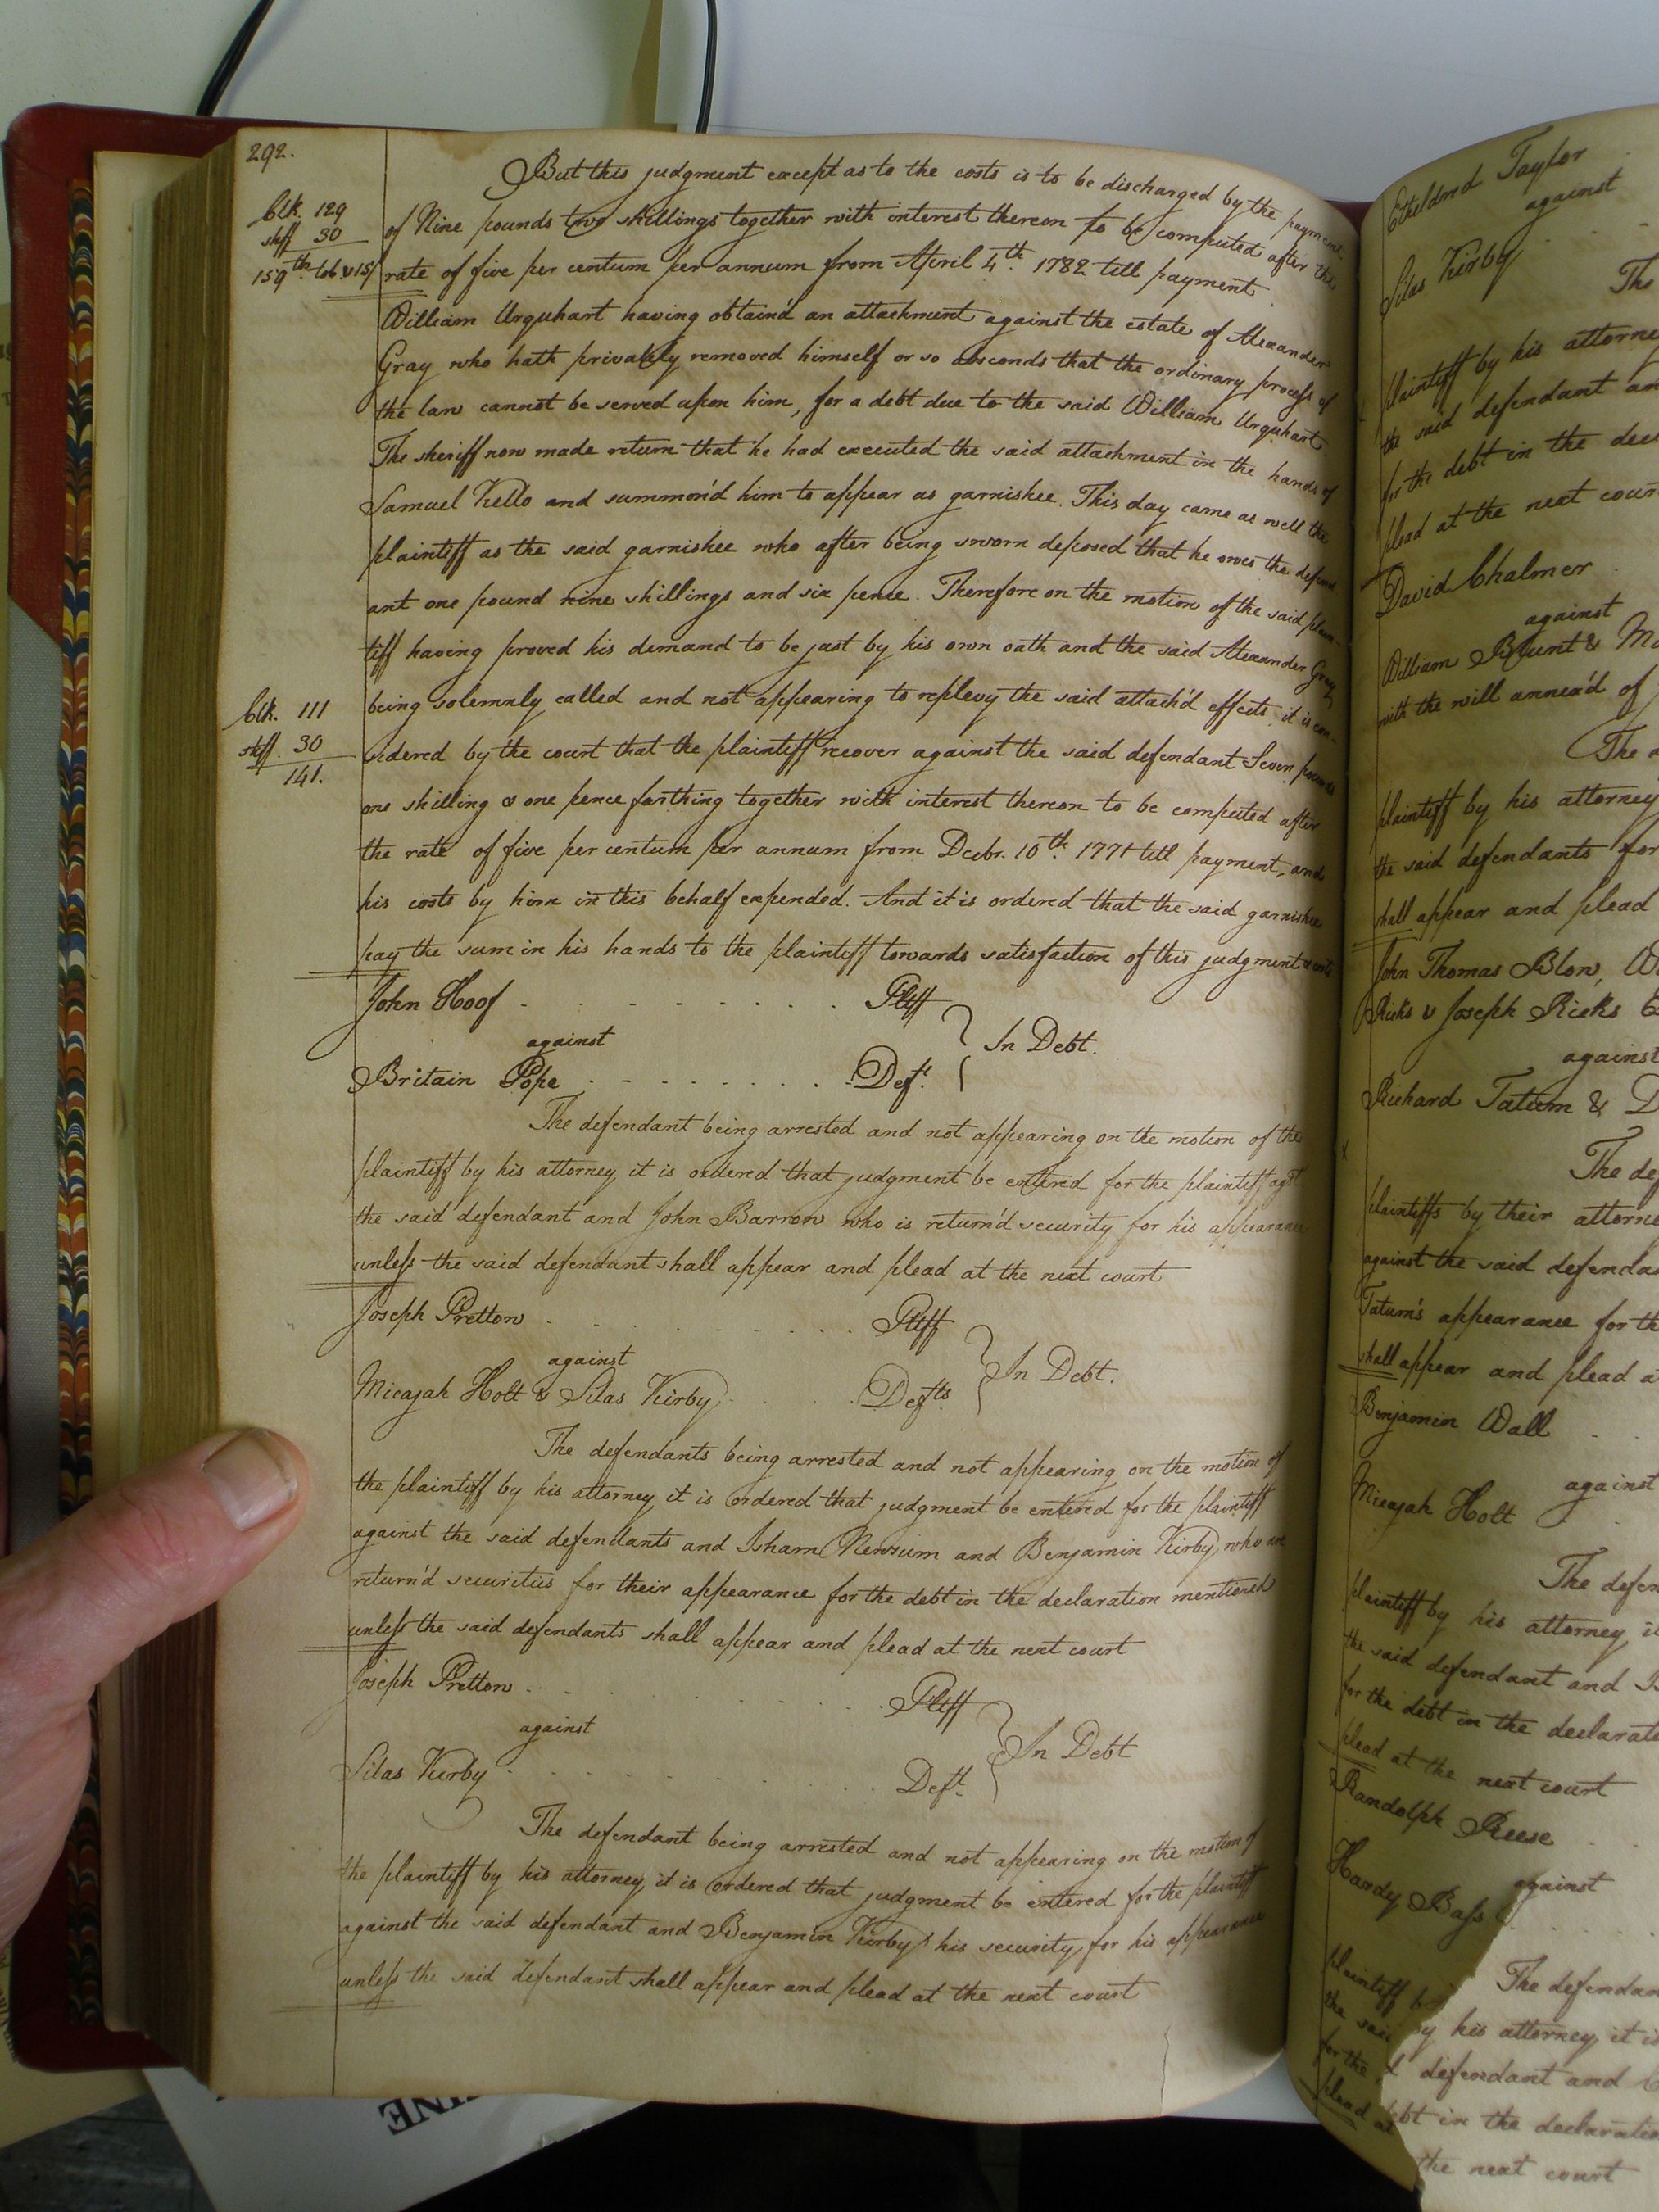 292.
But this judgment except as to the costs is to be discharged by the payment
Clk. 129
of Nine pounds two shillings together with interest thereon to be computed after the
shff 30
rate of five per centum per annum from April 4th. 1782 till payment
159th tob & 15/
William Urquhart having obtain'd an attachment against the estate of Alexander
Gray who hath privately removed himself or so absconds that the ordinary process of
the law cannot be served upon him, for a debt due to the said William Urquhart
The sheriff now made return that he had executed the said attachment in the hands of
Samuel Kello and summon'd him to appear as garnishee. This day came as well the
plaintiff as the said garnishee who after being sworn deposed that he owes the defend
ant one pound nine shillings and six pence. Therefore on the motion of the said plain-
tiff having proved his demand to be just by his own oath and the said Alexander Gray
being solemnly called and not appearing to replevy the said attach'd effects, it is con-
Clk. 111
sidered by the court that the plaintiff recover against the said defendant Seven pounds
shff. 30
one shilling & one pence farthing together with interest thereon to be computed after
141.
the rate of five per centum per annum from Decbr. 10th. 1771 till payment, and
his costs by him in this behalf expended. And it is ordered that the said garnishee
pay the sum in his hands to the plaintiff towards satisfaction of this judgment & costs
John Hoof Pltff
against
In Debt.
Britain Pope Deft.
The defendant being arrested and not appearing on the motion of the
plaintiff by his attorney it is ordered that judgment be entered for the plaintiff agst
the said defendant and John Barrow who is return'd security for his appearance
unless the said defendant shall appear and plead at the next court
Joseph Pretlow Pltff
against
In Debt.
Micajah Holt & Silas Kirby Defts.
The defendants being arrested and not appearing on the motion of
the plaintiff by his attorney it is ordered that judgment be entered for the plaintiff
against the said defendants and Isham Newsum and Benjamin Kirby who are
return'd securities for their appearance for the debt in the declaration mentioned
unless the said defendants shall appear and plead at the next court
Joseph Pretlow Pltff
against
In Debt
Silas Kirby Deft.
The defendant being arrested and not appearing on the motion of
the plaintiff by his attorney it is ordered that judgment be entered for the plaintiff
against the said defendant and Benjamin Kirby his security for his appearance
unless the said defendant shall appear and plead at the next court
Etheldred Taylor
against
Silas Kirby
The
plaintiff by his attorne
the said defendant an
for the debt in the dec
plead at the next cour
David Chalmer
against
William Blunt & Ma
with the will annex'd of
The
plaintiff by his attorney
the said defendants for
shall appear and plead
John Thomas Blow, W
Ricks & Joseph Ricks
against
Richard Tatum & D
The de
plaintiffs by their attorne
against the said defenda
Tatum's appearance for th
shall appear and plead a
Benjamin Wall
against
Micajah Holt
The defen
plaintiff by his attorney i
the said defendant and I
for the debt in the declarat
plead at the next court
Randolph Reese
against
Hardy Bass
The defendan
plaintiff by his attorney it i
the said defendant and
for the debt in the declaratio
plead at the next court
INE